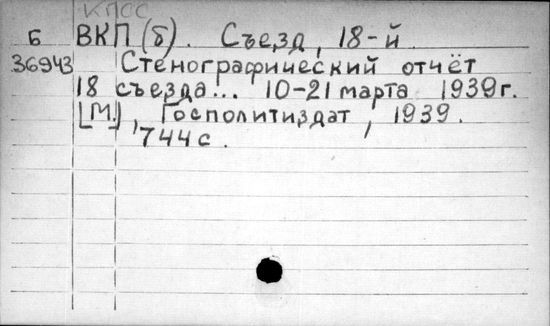 КПСС
Б ВКП(б). Съезд, 18-й
36943 Стенографический отчёт
18 съезда... 10-21 марта 1939г.
[М.], Госполитиздат, 1939.
744с.